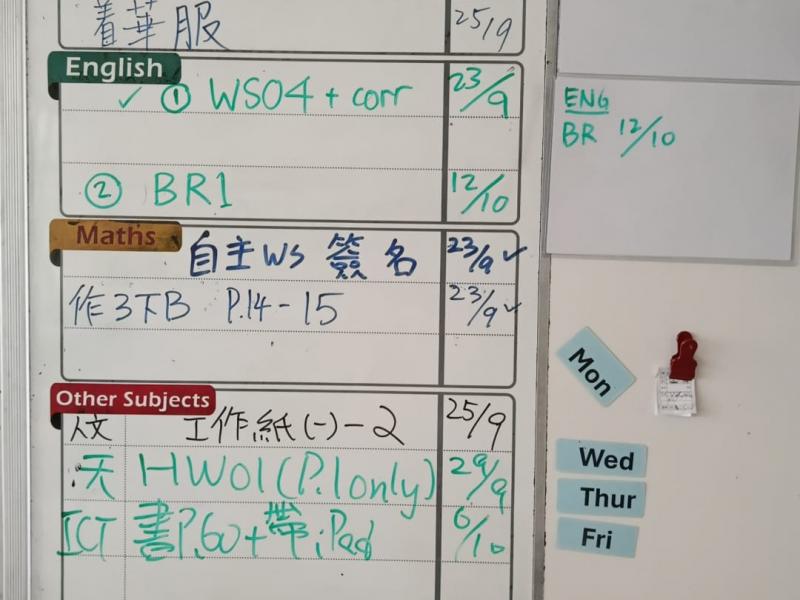 着華服 25/9
English
✓ ① WS04 + corr 23/9
② BR1 12/10
Maths
自主WS 簽名 23/9 ✓
作3下B P.14-15 23/9 ✓
Other Subjects
人文 工作紙(一)-2 25/9
天 HW01(P.1 only) 29/9
ICT 書P.60+帶iPad 6/10
ENG
BR 12/10
Mon
Wed
Thur
Fri